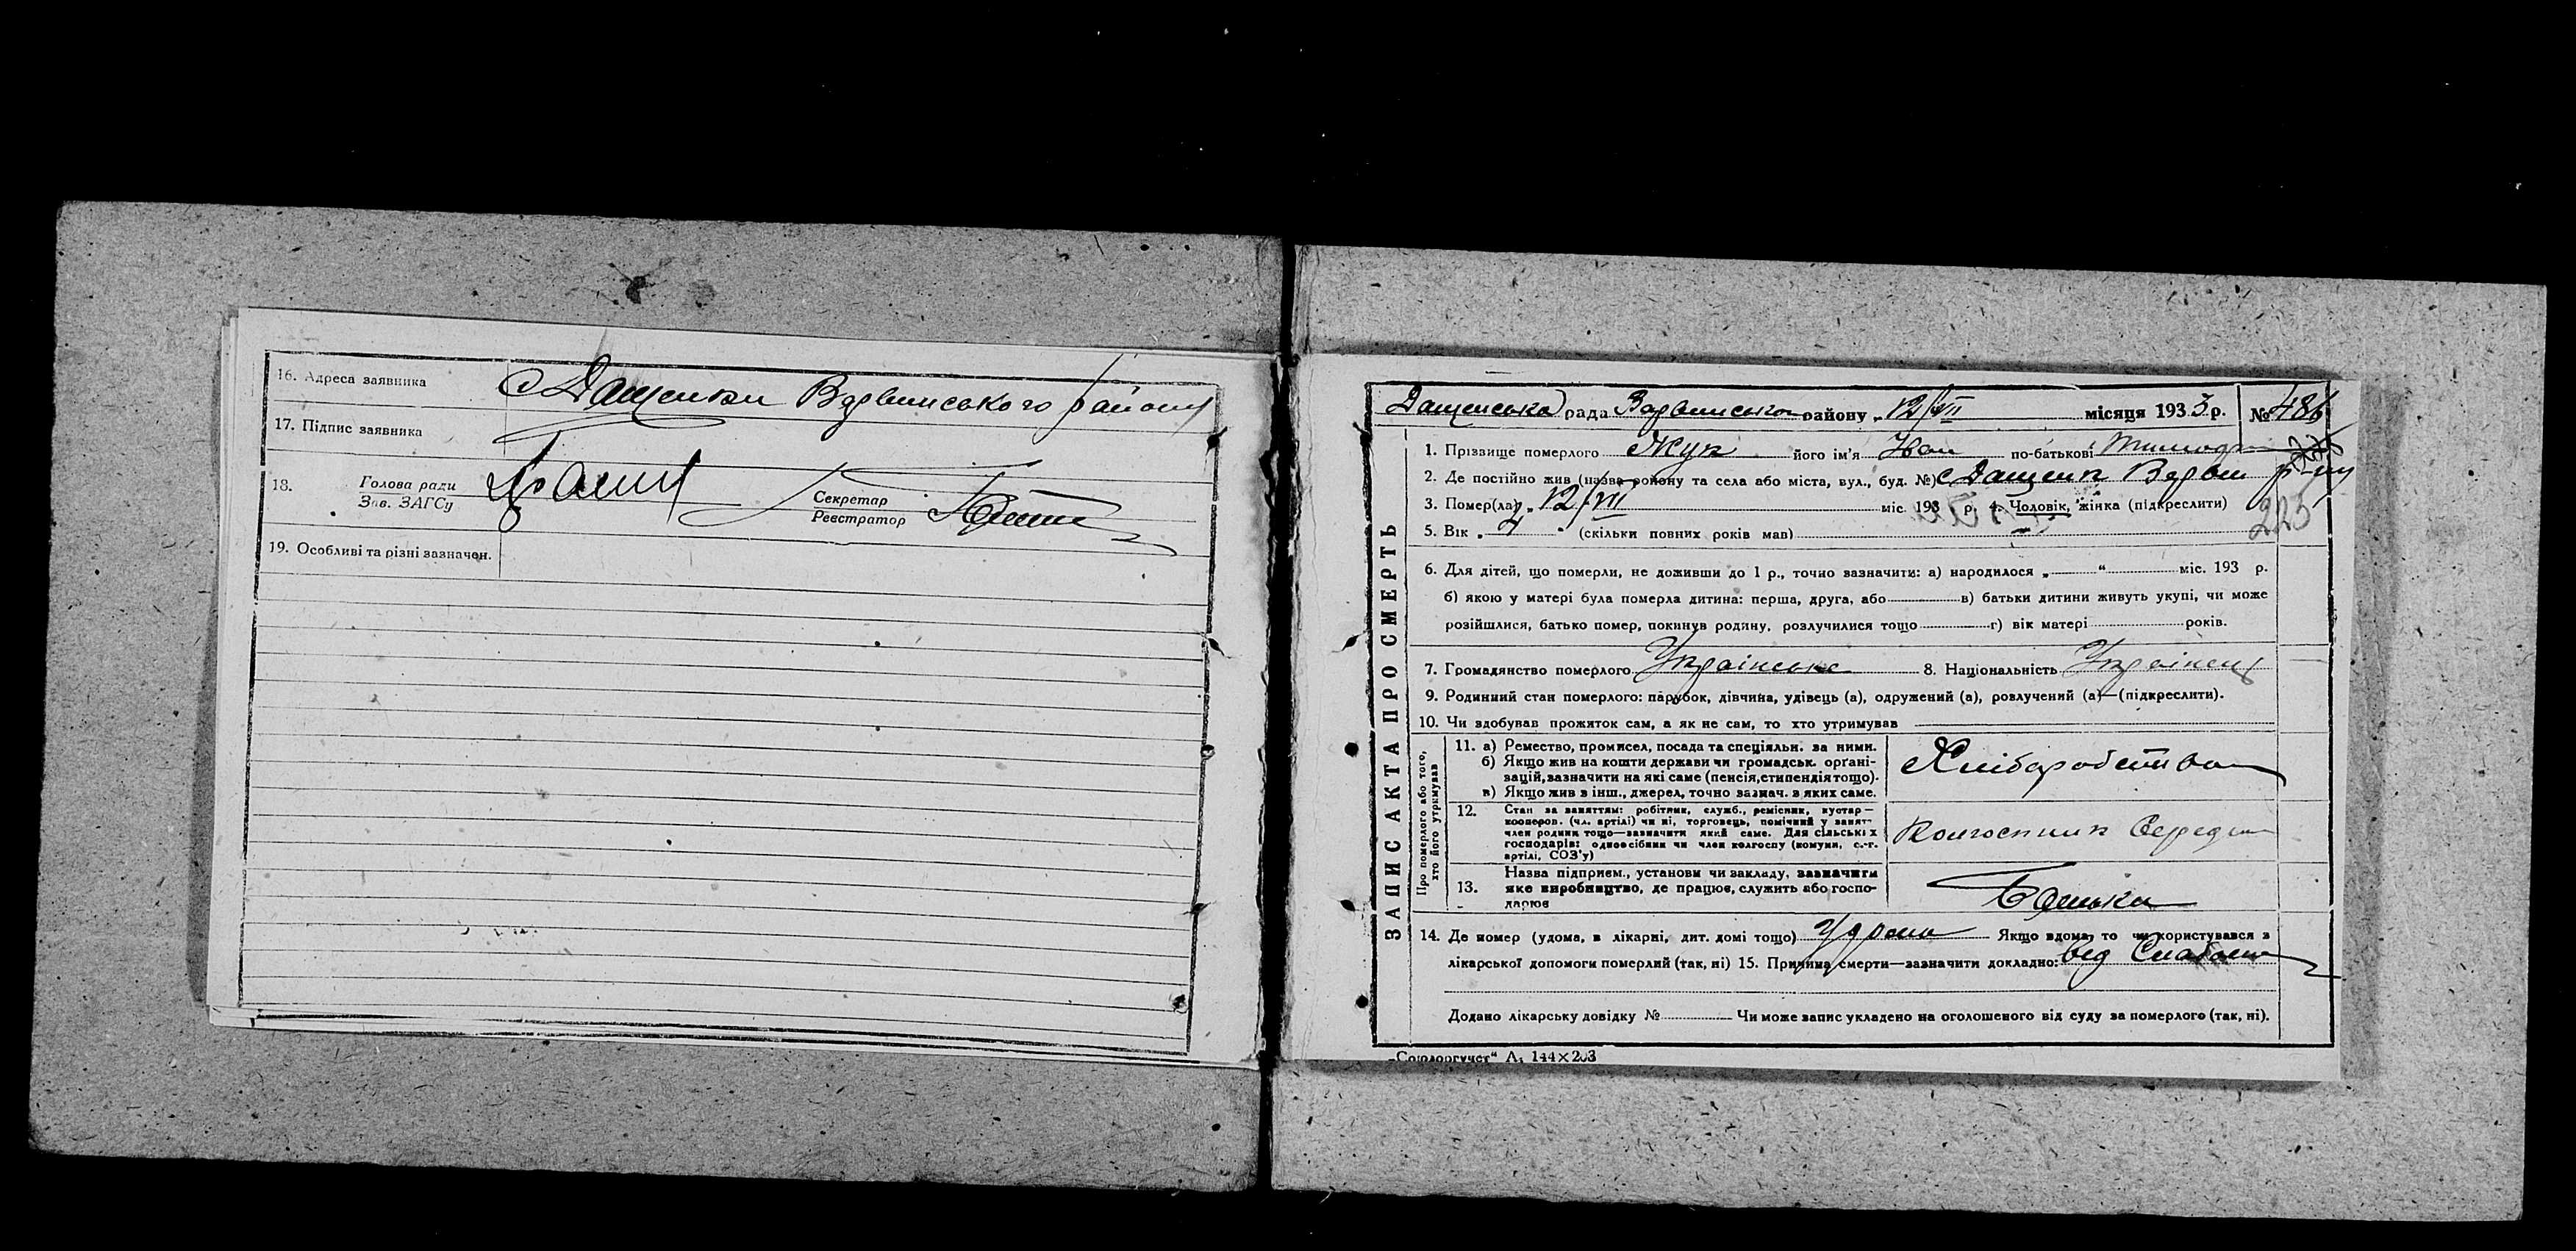 16. Адреса заявника с Дащенки Варвинського району
17. Підпис заявника
18. Голова ради
Зав. ЗАГСу
Секретар
Реєстратор
19. Особливі та різні зазначен.
Дащенська рада Варвинського району „ 12/VII місяця 1933 р. № 486
ЗАПИС АКТА ПРО СМЕРТЬ
1. Прізвище померлого Жук його ім'я Іван по-батькові
2. Де постійно жив (назва району та села або міста, вул., буд. №) с Дащенк Варвин р-ну
3. Помер(ла) „ 12/VII міс. 193 р. 4. Чоловік, жінка (підкреслити)
225
5. Вік „ 4 " (скільки повних років мав)
6. Для дітей, що померли, не доживши до 1 р., точно зазначити: а) народилося „ " міс. 193 р.
б) якою у матері була померла дитина: перша, друга, або в) батьки дитини живуть укупі, чи може
розійшлися, батько помер, покинув родину, розлучилися тощо г) вік матері років.
7. Громадянство померлого Українське 8. Національність Українец
9. Родинний стан померлого: парубок, дівчина, удівець (а), одружений (а), розлучений (а)—(підкреслити).
10. Чи здобував прожиток сам, а як не сам, то хто утримував
Про померлого або того,
хто його утримував
11. а) Ремество, промисел, посада та спеціяльн. за ними.
б) Якщо жив на кошти держави чи громадськ. організацій, зазначити на які саме (пенсія, стипендія тощо).
в) Якщо жив з інш., джерел, точно зазнач. з яких саме.
Хлібаробство
12. Стан за заняттям: робітник, служб., ремісник, кустар—
кооперов. (чл. артілі) чи ні, торговець, помічний у занят-
член родини тощо—зазначити який саме. Для сільських
господарів: одноосібник чи член колгоспу (комуни, с.-г.
артілі, СОЗ'у)
Колгоспник Середн
13. Назва підприєм., установи чи закладу, зазначити
яке виробництво, де працює, служить або госпо-
дарює
Батька
14. Де помер (удома, в лікарні, дит. домі тощо) Удома Якщо вдома, то чи користувався з
лікарської допомоги померлий (так, ні) 15. Причина смерти—зазначити докладно: від
Додано лікарську довідку № Чи може запис укладено на оголошеного від суду за померлого (так, ні).
„Союзоргучет" А₅ 144×203